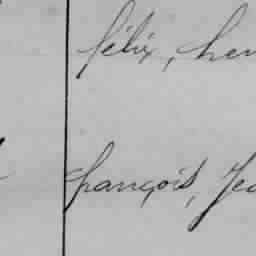 félix, hen
françois, Jea